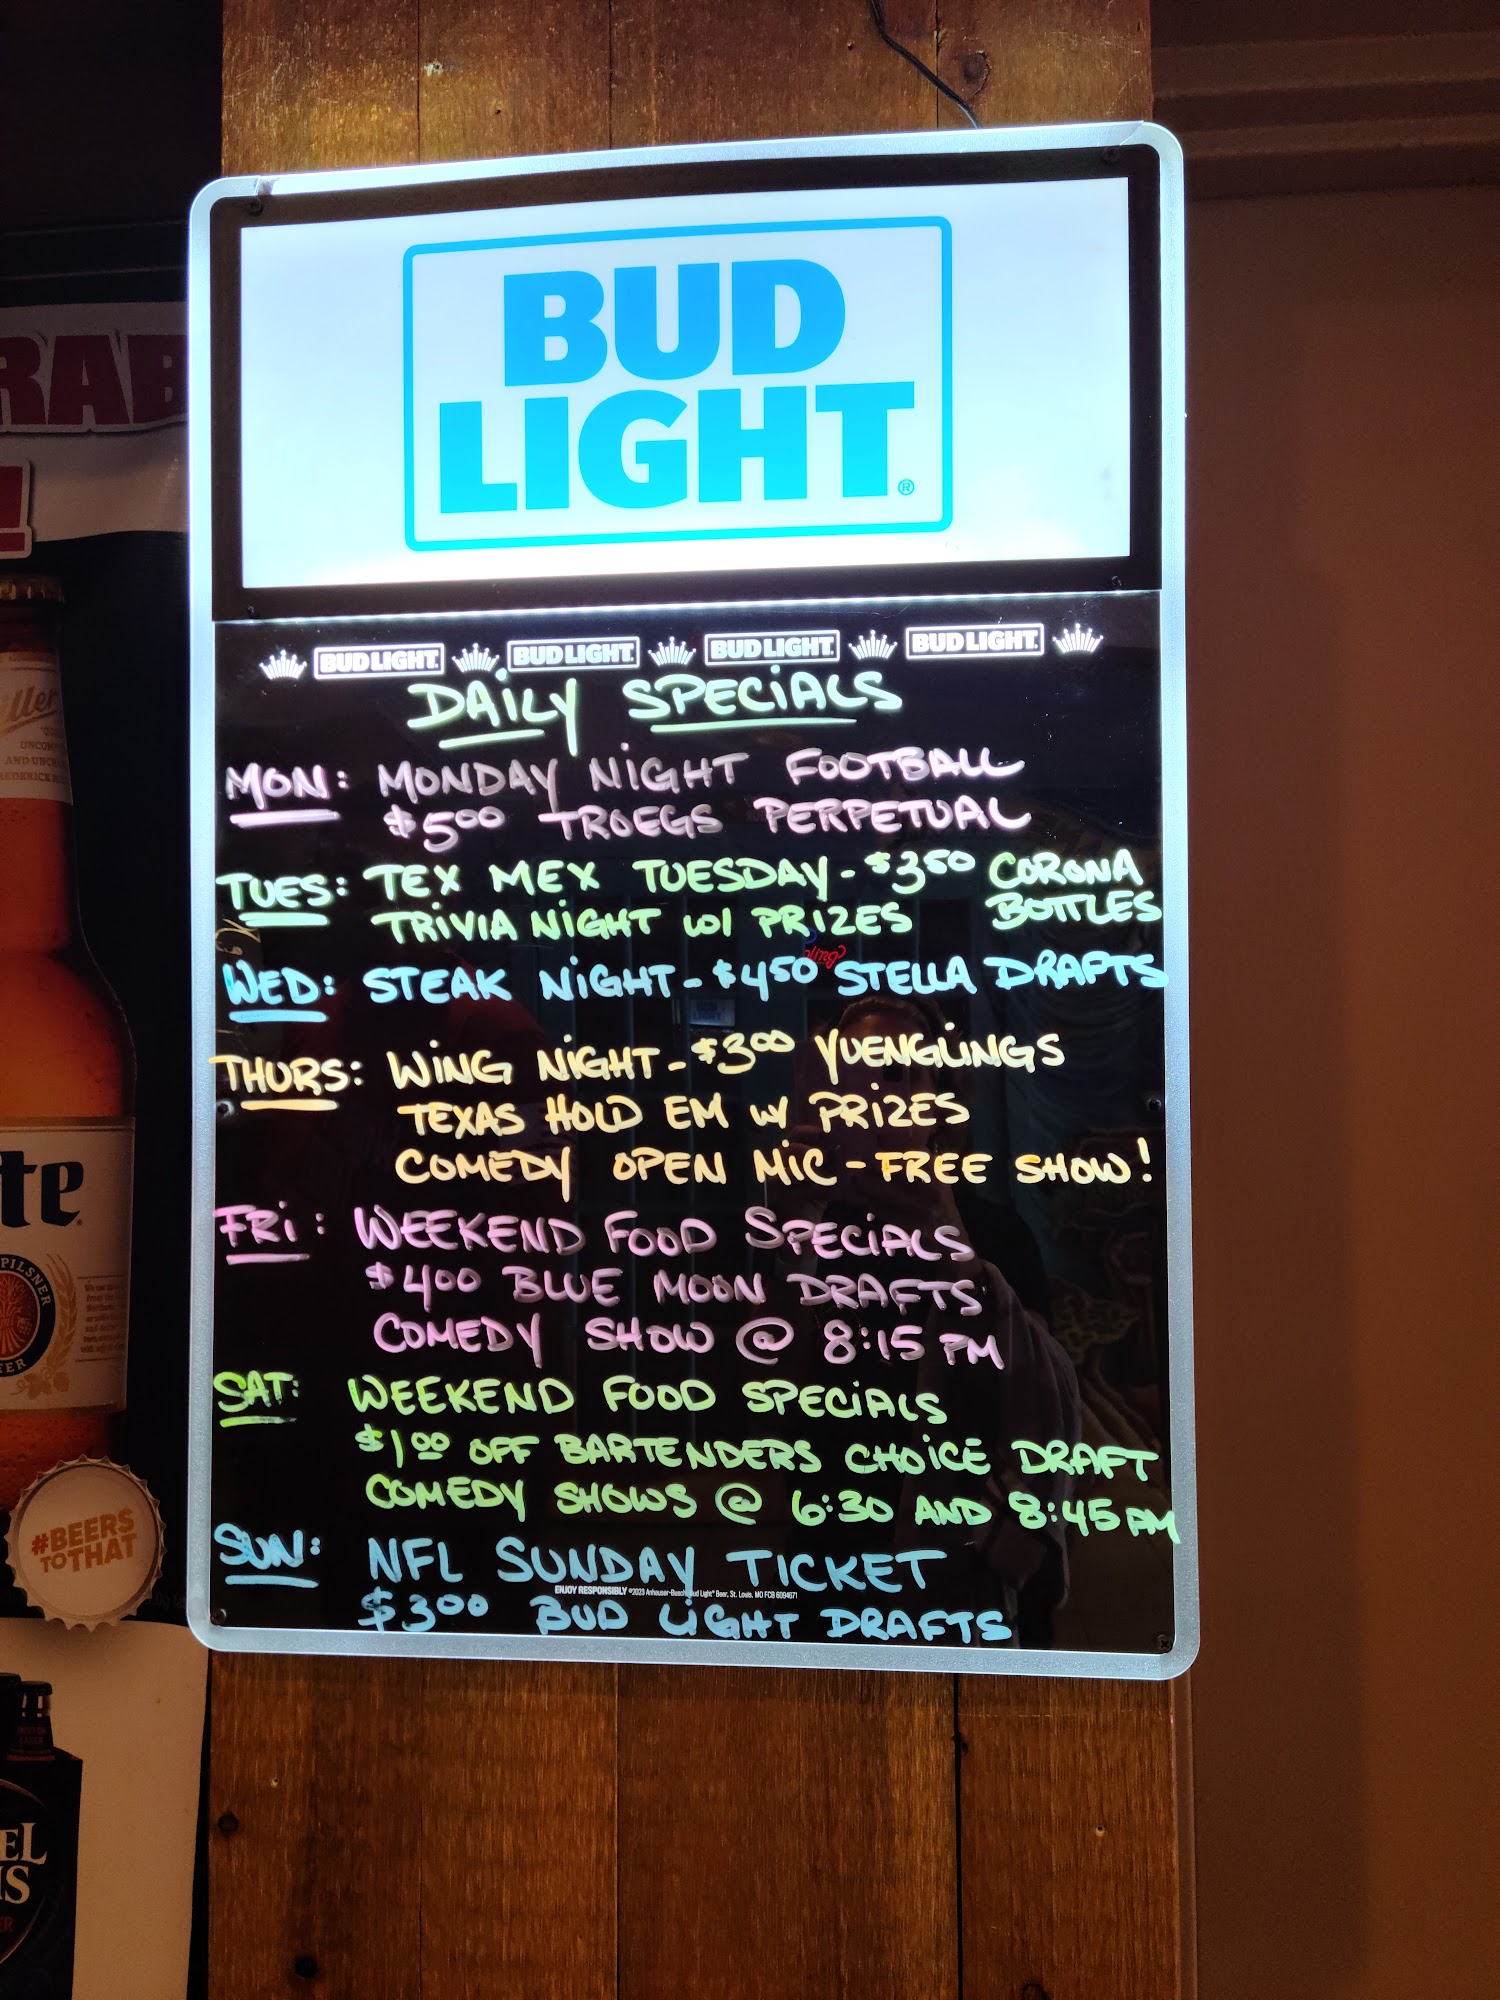 BUD
LIGHT®
BUD LIGHT. BUD LIGHT. BUD LIGHT. BUD LIGHT.
DAiLY SPECiALS
MON: MONDAY NiGHT FOOTBALL
$500 TROEGS PERPETUAL
TUES: TEX MEX TUESDAY - $350 CORONA
BOTTLES
TRiVIA NiGHT w/ PRIZES
WED: STEAK NiGHT - $450 STELLA DRAFTS
THURS: WiNG NiGHT - $300 YUENGLiNGS
TEXAS HOLD EM w/ PRIZES
COMEDY OPEN MiC - FREE SHOW!
FRi: WEEKEND FOOD SPECiALS
$400 BLUE MOON DRAFTS
COMEDY SHOW @ 8:15 PM
SAT: WEEKEND FOOD SPECiALS
$100 OFF BARTENDERS CHOiCE DRAFT
COMEDY SHOWS @ 6:30 AND 8:45 PM
SUN: NFL SUNDAY TICKET
ENJOY RESPONSIBLY ©2023 Anheuser-Busch, Bud Light® Beer, St. Louis, MO FCB 6094671
$300 BUD LiGHT DRAFTS
RAB
!
ller
te
PILSNER
BEER
#BEERS
TOTHAT
EL
IS